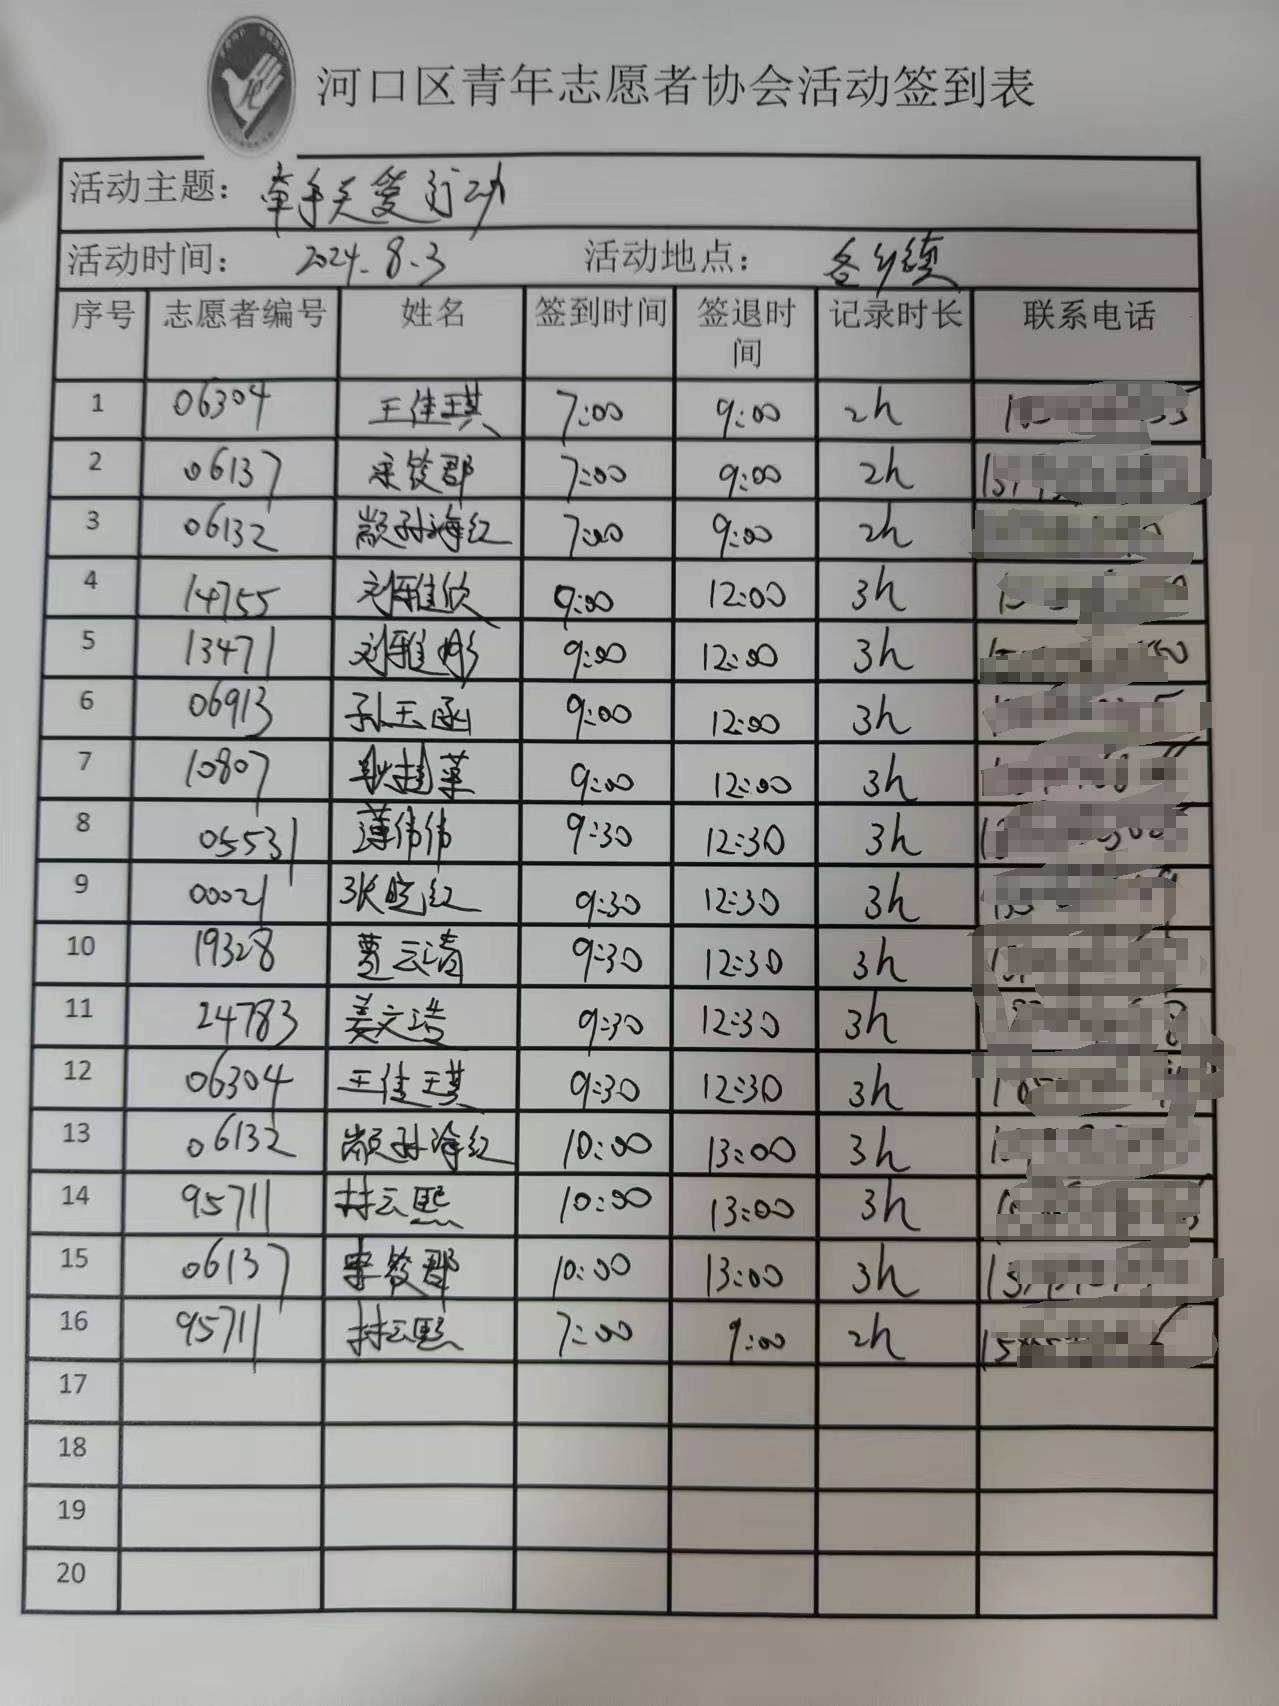 河口区青年志愿者协会活动签到表
活动主题：牵手关爱行动
活动时间：2024.8.3 活动地点：各乡镇
序号 志愿者编号 姓名 签到时间 签退时间 记录时长 联系电话
1 06304 王佳琪 7:00 9:00 2h
2 06137 宋钦郡 7:00 9:00 2h
3 06132 颛孙海红 7:00 9:00 2h
4 14755 刘雅欣 9:00 12:00 3h
5 13471 刘雅彤 9:00 12:00 3h
6 06913 孙玉函 9:00 12:00 3h
7 10807 耿桂苹 9:00 12:00 3h
8 05531 薄伟伟 9:30 12:30 3h
9 00021 张晓红 9:30 12:30 3h
10 19328 贾云清 9:30 12:30 3h
11 24783 姜文浩 9:30 12:30 3h
12 06304 王佳琪 9:30 12:30 3h
13 06132 颛孙海红 10:00 13:00 3h
14 95711 封云熙 10:00 13:00 3h
15 06137 宋钦郡 10:00 13:00 3h
16 95711 封云熙 7:00 9:00 2h
17
18
19
20